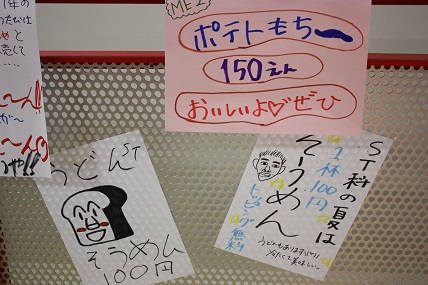 ME2
ポテトもち〜
150えん
おいしいよ♡ぜひ
うどんST
そうめん
100円
ST科の夏は
1杯100円
そうめん
トッピング無料
うどんもありますヨ!!
冷たくて美味しい。